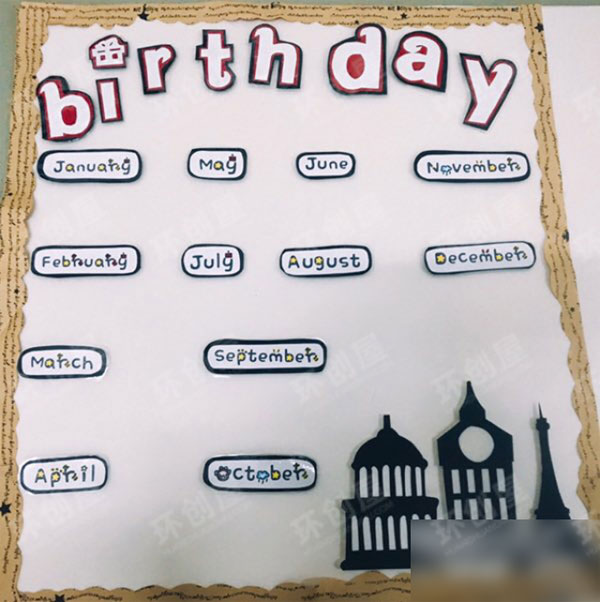 birthday
January May June November
February July August December
March September
April October
环创屋